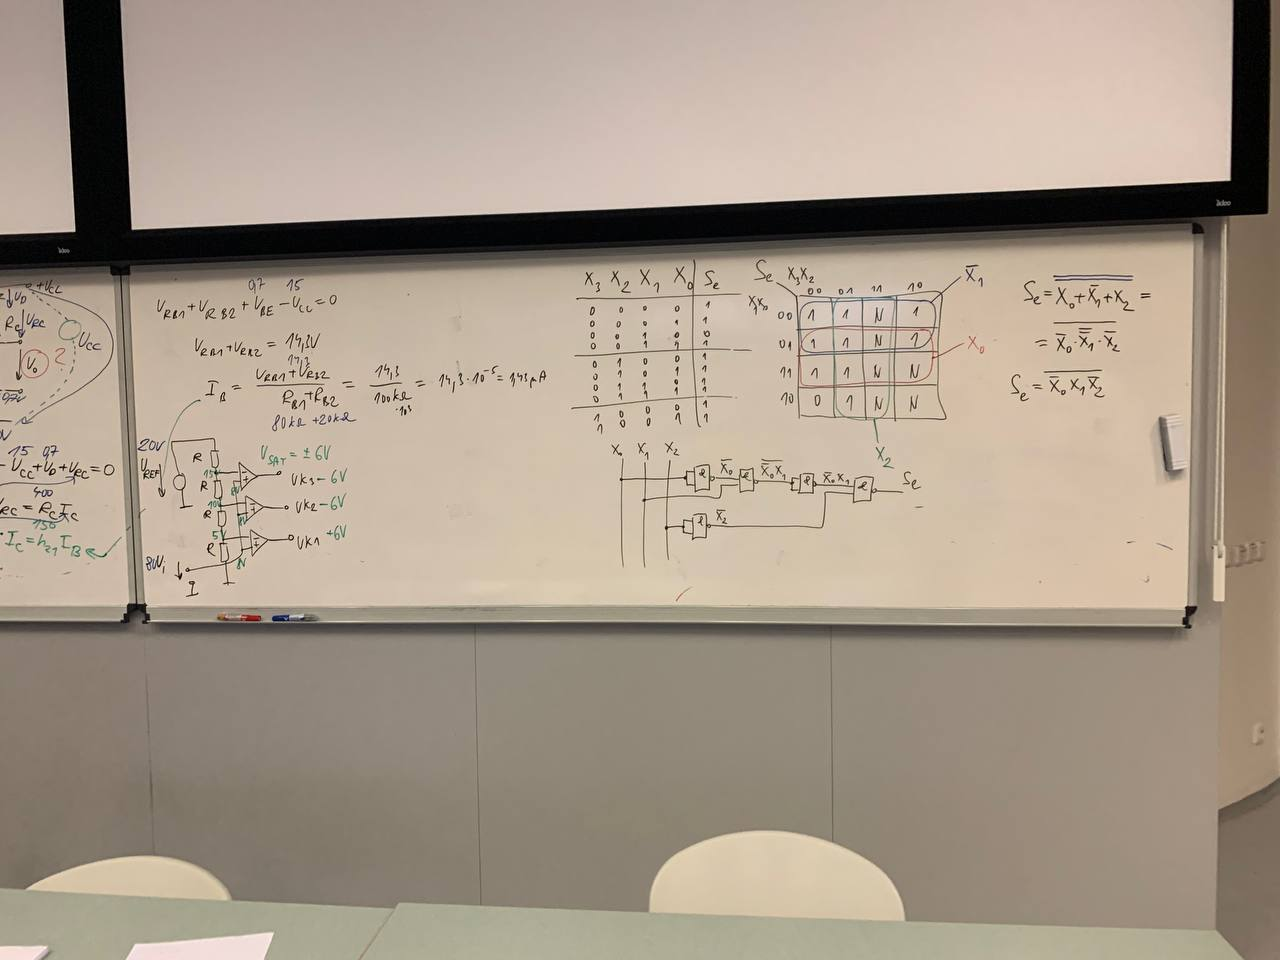 +Vcc
VRC
Rc
Vo
2
Vcc
15 0,7
- Vcc+Vo+VRC=0
400
VRC = Rc Ic
150
Ic = h21 IB
0,7 15
VRB1+VRB2+VBE-Vcc=0
VRB1+VRB2 = 14,3V
14,3
IB = (VRB1+VRB2)/(RB1+RB2) = 14,3/100kΩ = 14,3·10⁻⁵ = 143μA
·10³
80kΩ+20kΩ
20V
VREF
R
15
R
10
R
5
R
VSAT = ±6V
VK3 -6V
VK2 -6V
VK1 +6V
8V Vi
8V
X3 X2 X1 X0 Se
0 0 0 0 1
0 0 0 1 1
0 0 1 0 0
0 0 1 1 1
0 1 0 0 1
0 1 0 1 1
0 1 1 0 1
0 1 1 1 1
1 0 0 0 1
1 0 0 1 1
Se X3X2
X1X0 00 01 11 10
00 1 1 N 1
01 1 1 N 1
11 1 1 N N
10 0 1 N N
X̅1
X0
X2
Se = X0+X̅1+X2 =
= X̅0·X̅1·X̅2
Se = X̅0 X1 X̅2
X0 X1 X2
& X̅0 & X̅0X1 & X̅0X1 & Se
& X̅2
ideo
ideo